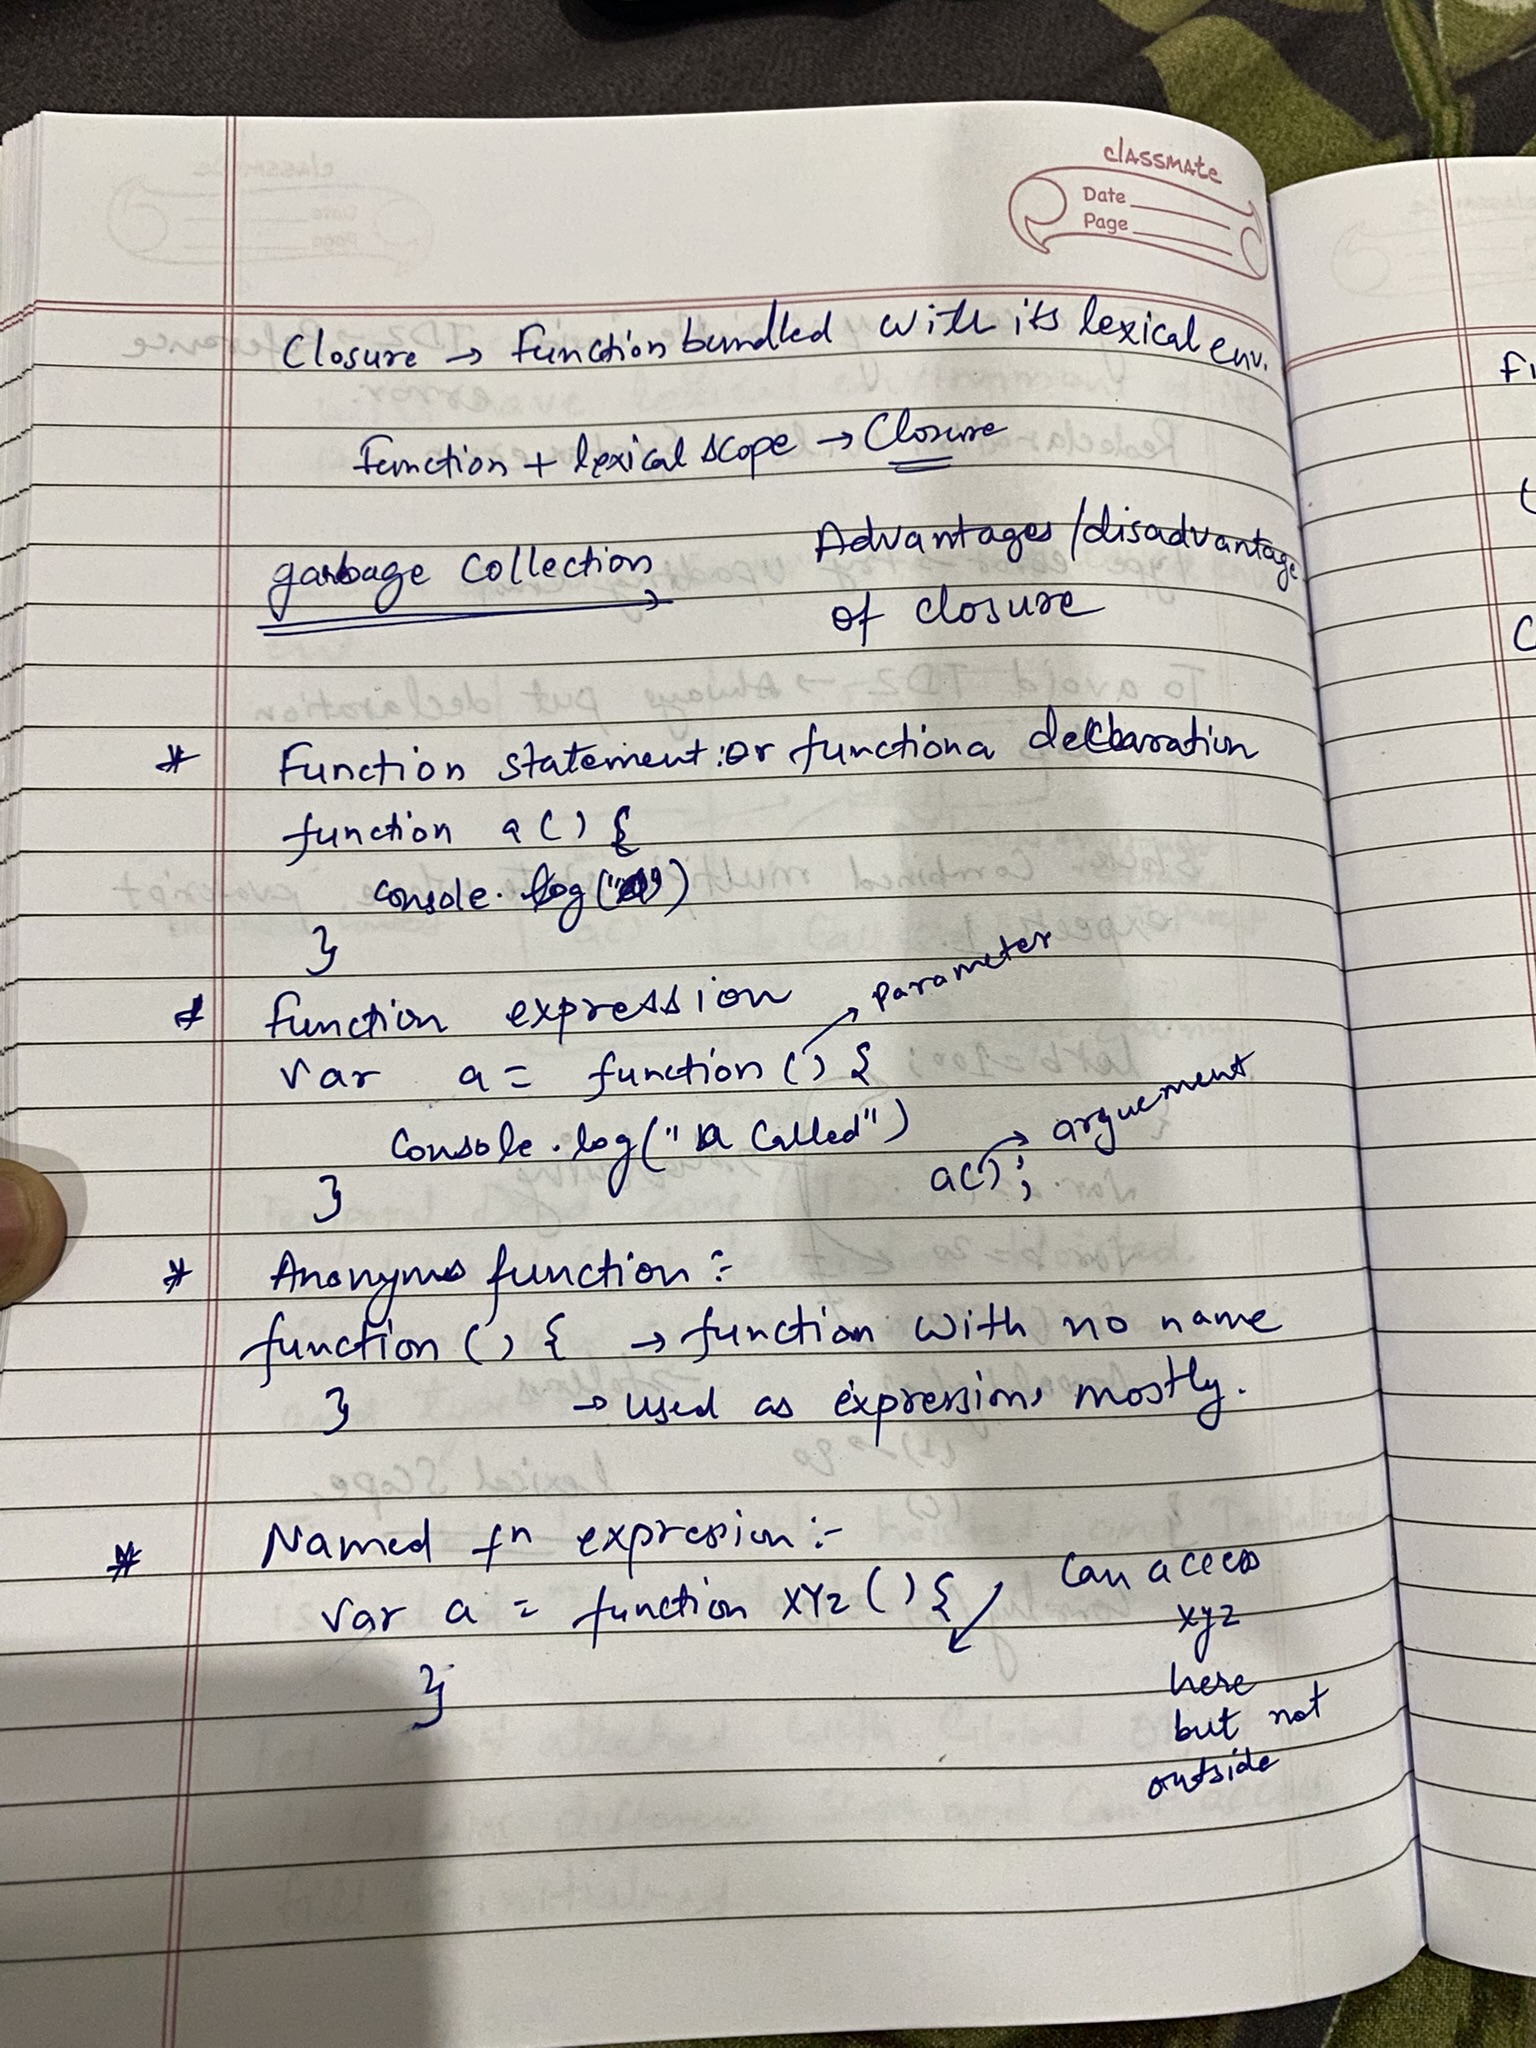 classmate
Date
Page
Closure → Function bundled with its lexical env.
Function + lexical scope → Closure
garbage collection
Advantages/disadvantage
of closure
* Function statement: or functiona declaration
function a() {
console.log(" ")
}
* function expression → parameter
var a = function () {
console.log("a called")
a(); → arguement
}
* Anonymus function :-
function () { → function with no name
} → used as expressions mostly.
* Named fn expression :-
var a = function XYZ () {
can access
xyz
here
but not
outside
}